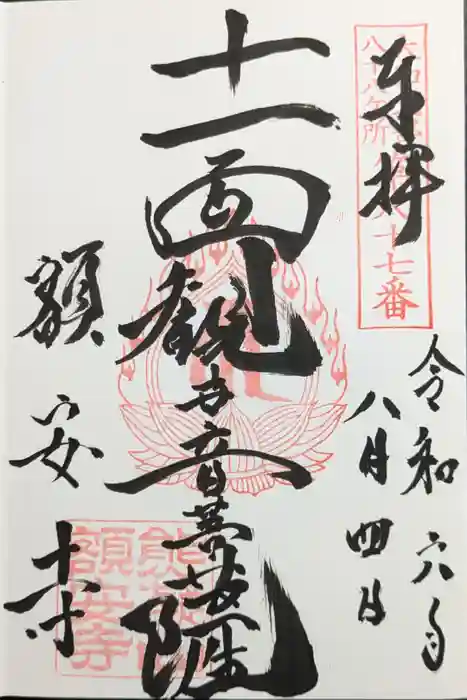 奉拝
令和六年
八月四日
十一面観世音菩薩
額安寺
八十八ケ所
十七番
額安寺